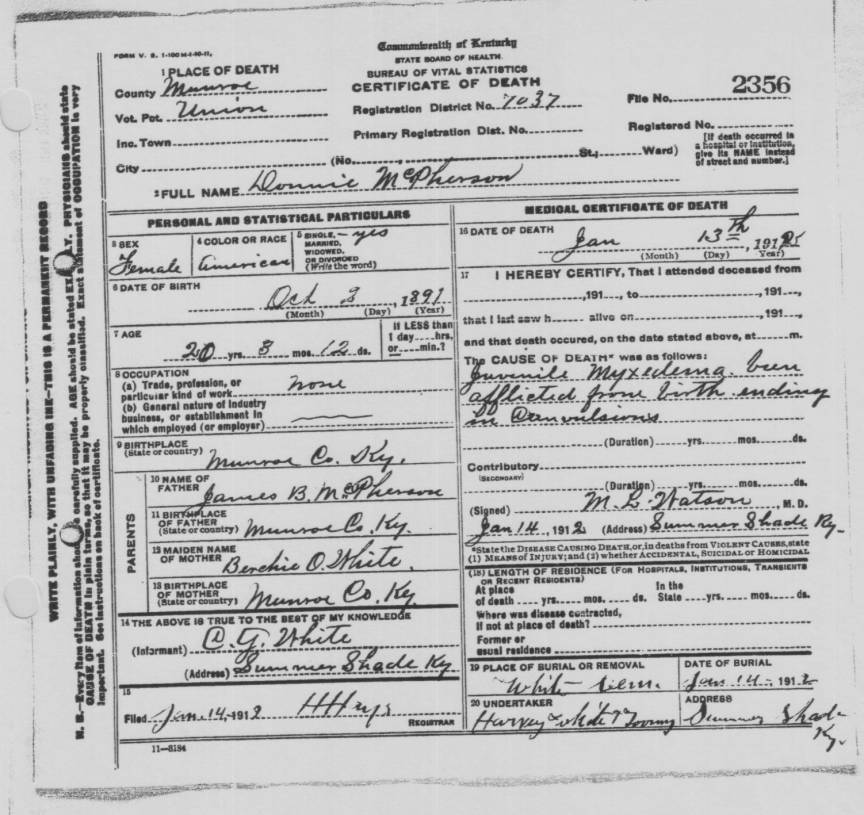 FORM V. S. 1-100M-1-20-11.
Commonwealth of Kentucky
STATE BOARD OF HEALTH
BUREAU OF VITAL STATISTICS
CERTIFICATE OF DEATH
1 PLACE OF DEATH
County Munroe
Vot. Pct. Union
Inc. Town
City
Registration District No. 7037
Primary Registration Dist. No.
File No. 2356
Registered No.
(No. , St.; Ward)
[If death occurred in
a hospital or institution,
give its NAME instead
of street and number.]
2 FULL NAME Donnie McPherson
PERSONAL AND STATISTICAL PARTICULARS
3 SEX
Female
4 COLOR OR RACE
American
5 SINGLE, - yes
MARRIED,
WIDOWED,
OR DIVORCED
(Write the word)
6 DATE OF BIRTH
Oct 3, 1891
(Month) (Day) (Year)
7 AGE
20 yrs. 3 mos. 12 ds.
If LESS than
1 day....hrs.
or....min.?
8 OCCUPATION
(a) Trade, profession, or
particular kind of work none
(b) General nature of industry
business, or establishment in
which employed (or employer)
9 BIRTHPLACE
(State or country) Munroe Co. Ky.
PARENTS
10 NAME OF
FATHER James B. McPherson
11 BIRTHPLACE
OF FATHER
(State or country) Munroe Co. Ky.
12 MAIDEN NAME
OF MOTHER Berchie O. White.
13 BIRTHPLACE
OF MOTHER
(State or country) Munroe Co. Ky.
14 THE ABOVE IS TRUE TO THE BEST OF MY KNOWLEDGE
(Informant) G. White
(Address) Summer Shade Ky
15
Filed Jan. 14, 1912
REGISTRAR
11-8184
MEDICAL CERTIFICATE OF DEATH
16 DATE OF DEATH
Jan 13th, 1912
(Month) (Day) (Year)
17 I HEREBY CERTIFY, That I attended deceased from
, 191 , to , 191 ,
that I last saw h alive on , 191 ,
and that death occured, on the date stated above, at m.
The CAUSE OF DEATH* was as follows:
Juvenile Myxedema. been
afflicted from birth ending
in Convulsions
(Duration) yrs. mos. ds.
Contributory
(SECONDARY)
(Duration) yrs. mos. ds.
(Signed) M. L. Watson, M. D.
Jan 14, 1912 (Address) Summer Shade Ky.
*State the DISEASE CAUSING DEATH, or, in deaths from VIOLENT CAUSES, state
(1) MEANS OF INJURY; and (2) whether ACCIDENTAL, SUICIDAL or HOMICIDAL
(18) LENGTH OF RESIDENCE (FOR HOSPITALS, INSTITUTIONS, TRANSIENTS
OR RECENT RESIDENTS)
At place In the
of death yrs. mos. ds. State yrs. mos. ds.
Where was disease contracted,
If not at place of death?
Former or
usual residence
19 PLACE OF BURIAL OR REMOVAL
White Cem.
DATE OF BURIAL
Jan 14 - 1912
20 UNDERTAKER
Harvey White
ADDRESS
Summer Shade
Ky.
WRITE PLAINLY, WITH UNFADING INK—THIS IS A PERMANENT RECORD
N. B.—Every item of information should be carefully supplied. AGE should be stated EXACTLY. PHYSICIANS should state
CAUSE OF DEATH in plain terms, so that it may be properly classified. Exact statement of OCCUPATION is very
important. See instructions on back of certificate.